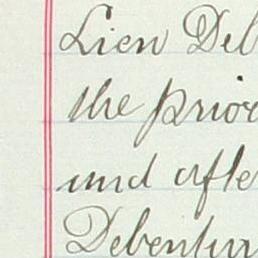 Lien Deb
the prior
and afte
Debentur